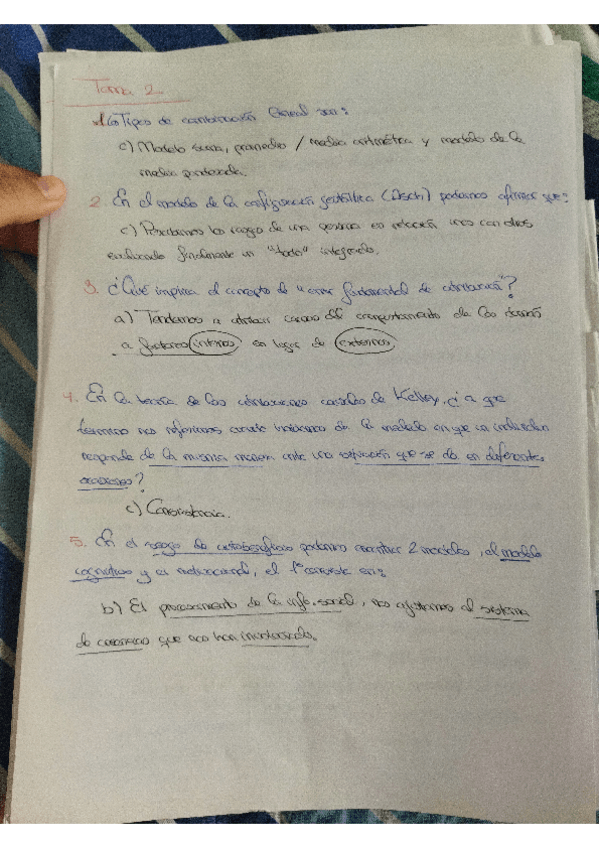 Tema 2
1. Los Tipos de combinación lineal son:
c) Modelo suma, promedio / media aritmética y modelo de la
media ponderada.
2. En el modelo de la configuración gestáltica (Asch) podemos afirmar que:
c) Percibimos los rasgos de una persona en relación unos con otros
finalmente un "todo" integrado.
3. ¿Qué implica el concepto de "error fundamental de atribución"?
a) Tendemos a atribuir causas del comportamiento de los demás
a factores internos en lugar de externos
4. En la teoría de las atribuciones causales de Kelley, ¿a que
termino nos referimos cuando hablamos de la medida en que un individuo
responde de la misma manera ante una situación que se da en diferentes
ocasiones?
c) Consistencia.
5. En el sesgo de autobeneficio podemos encontrar 2 modelos, el modelo
cognitivo y el motivacional, el 1º consiste en:
b) El procesamiento de la info. social, nos ajustamos al sistema
de creencias que nos han inculcado.